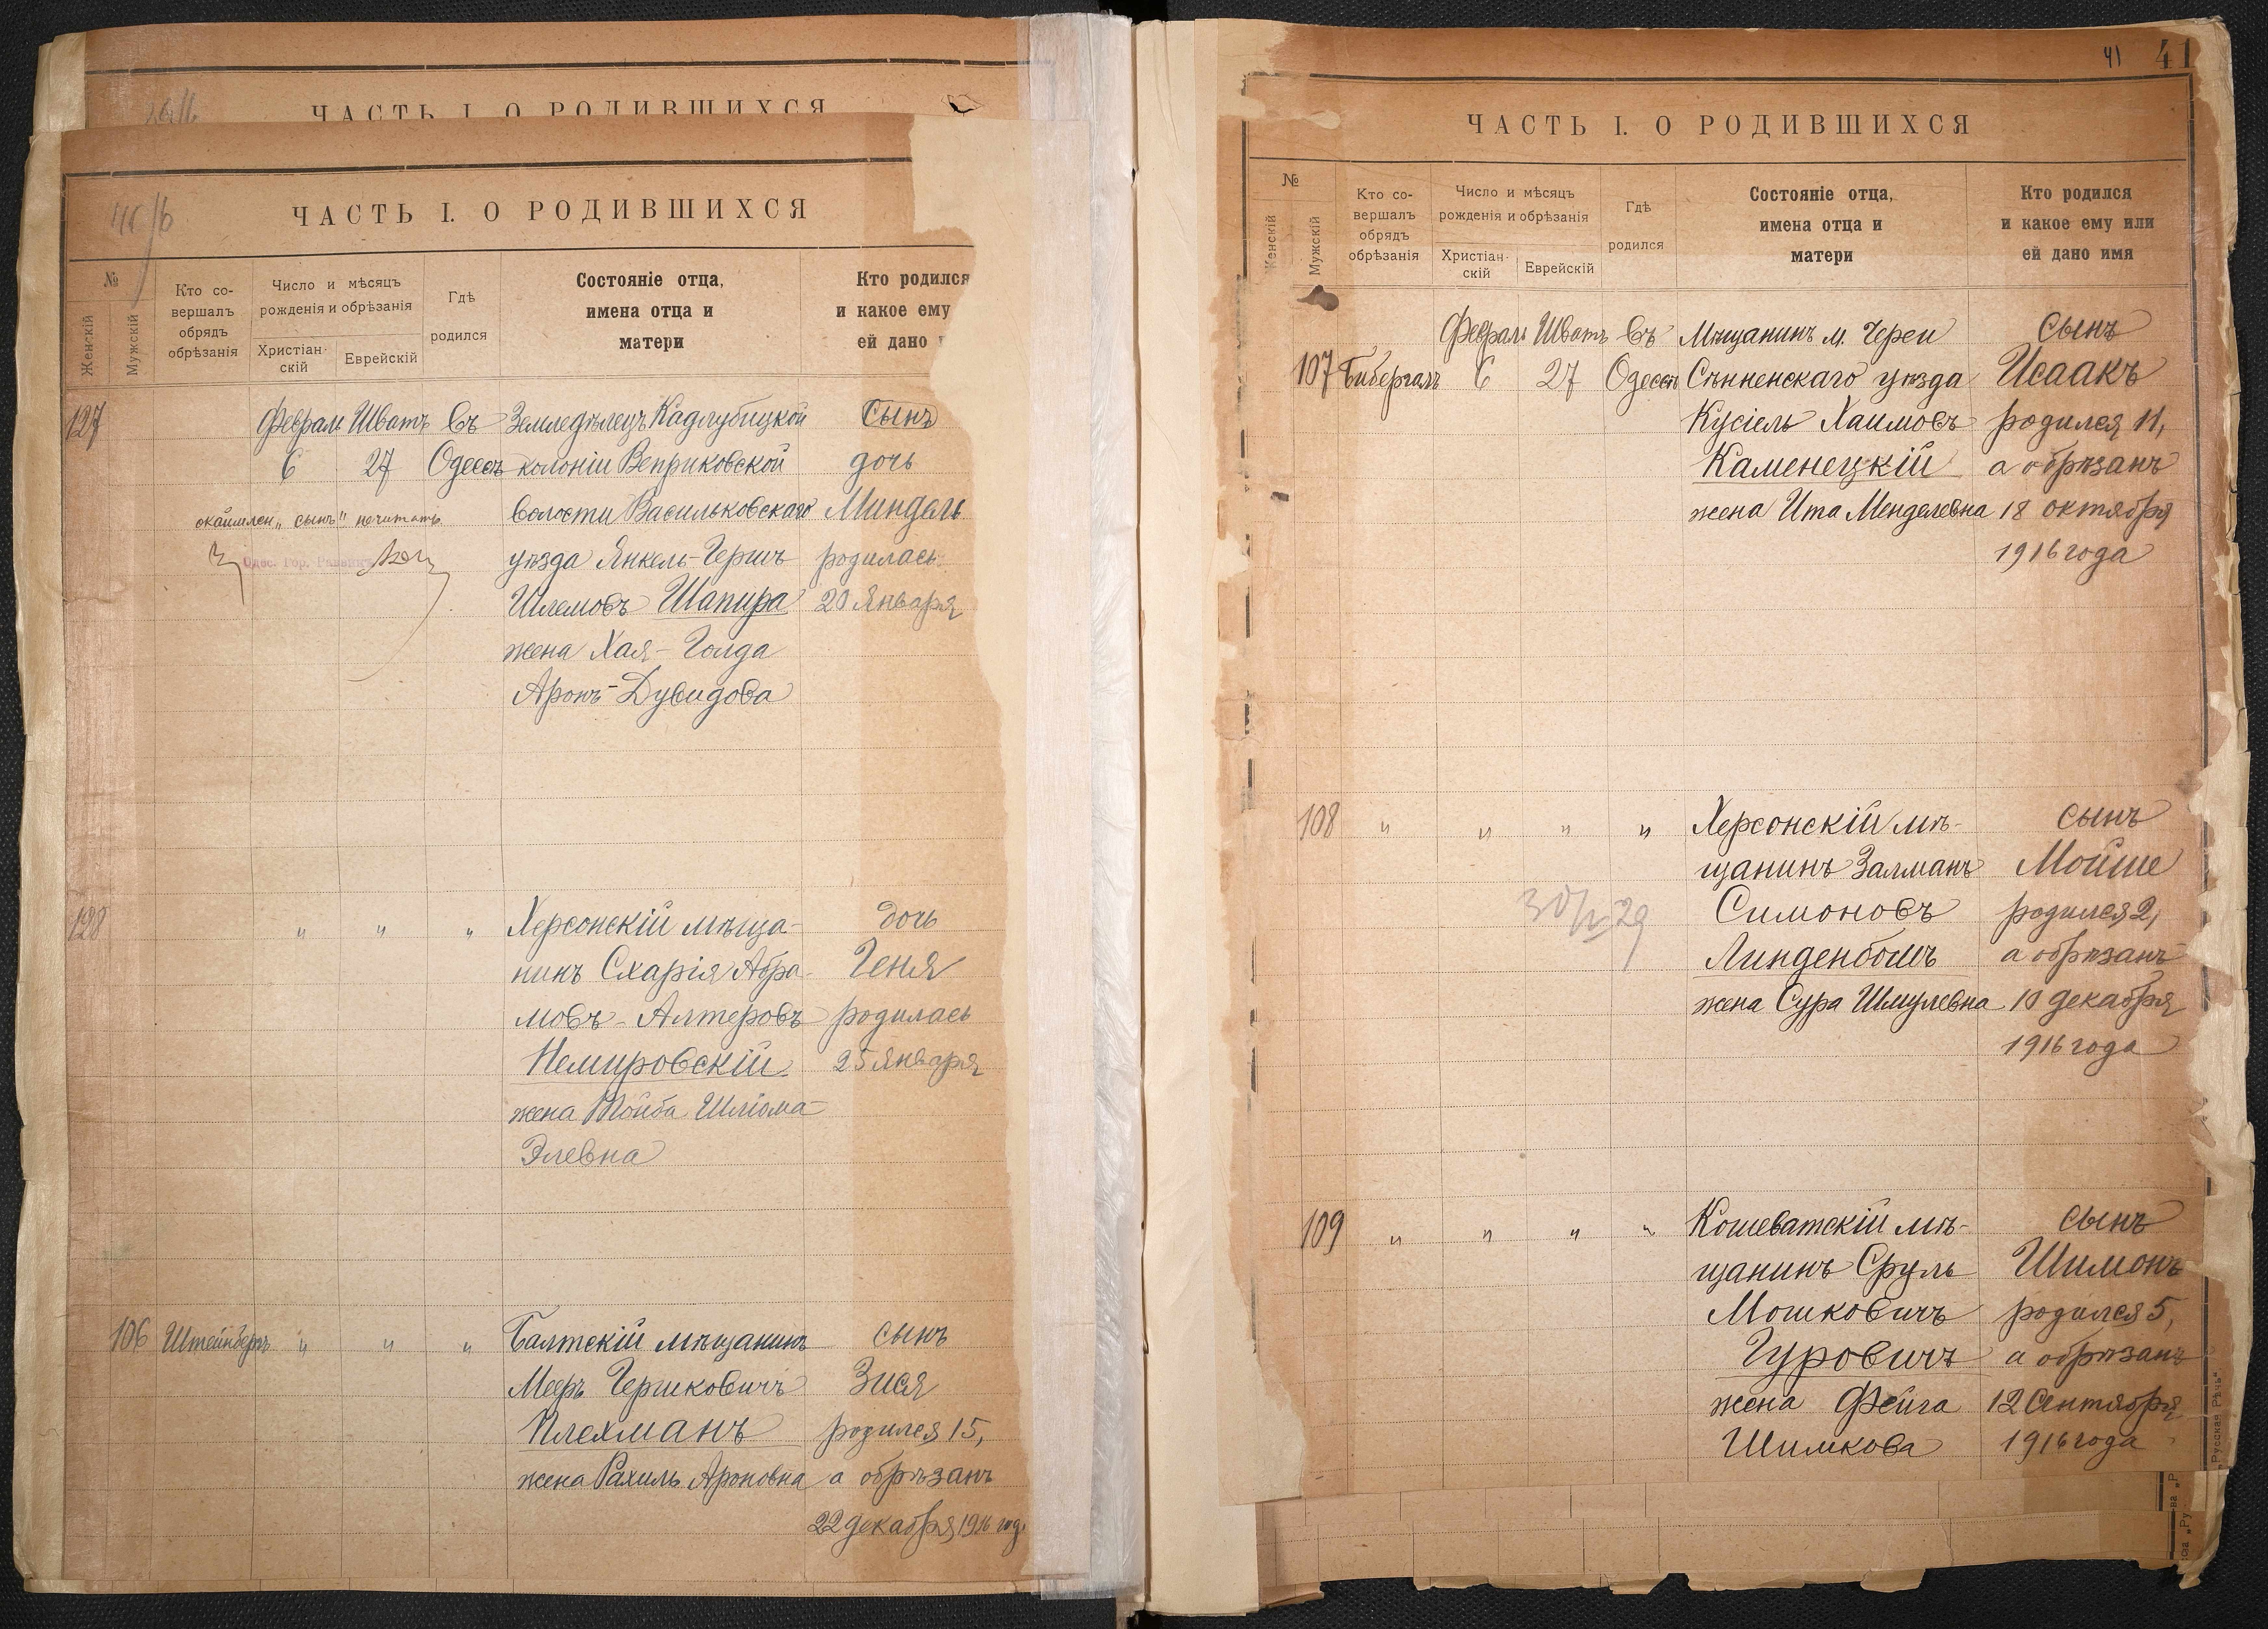 ЧАСТЬ I. О РОДИВШИХСЯ
ЧАСТЬ I. О РОДИВШИХСЯ
№
Женскій
Мужскій
Кто со-
вершалъ
обрядъ
обрѣзанія
Число и мѣсяцъ
рожденія и обрѣзанія
Христіан-
скій
Еврейскій
Гдѣ
родился
Состояніе отца,
имена отца и
матери
Кто родился
и какое ему
ей дано
127 Феврал Шватъ Въ Земледѣлецъ Кадлубицкой сынъ
6 27 Одессѣ колоніи Веприковской дочь
волости Васильковскаго Миндель
окаймлен „сынъ" нечитать
Одес. Гор. Раввинъ
уѣзда Янкель-Гершъ родилась
Шлемовъ Шапира 20 Января
жена Хая-Голда
Аронъ-Дувидова
128 „ „ „ Херсонскій мѣща- дочь
нинъ Схарія Абра- Геня
мовъ-Алтеровъ родилась
Немировскій 25 Января
жена Тойба Шліома-
Элевна
106 Штейнбергъ „ „ „ Балтскій мѣщанинъ сынъ
Меръ Гершковичъ Зися
Плехманъ родился 15,
жена Рахиль Ароновна а обрѣзанъ
22 декабря 1916 год
41 41
ЧАСТЬ I. О РОДИВШИХСЯ
№
Женскій
Мужскій
Кто со-
вершалъ
обрядъ
обрѣзанія
Число и мѣсяцъ
рожденія и обрѣзанія
Христіан-
скій
Еврейскій
Гдѣ
родился
Состояніе отца,
имена отца и
матери
Кто родился
и какое ему или
ей дано имя
Феврал Шватъ Въ Мѣщанинъ м. Череи сынъ
107 Бибергалъ 6 27 Одессѣ Сѣнненскаго уѣзда Исаакъ
Кусіель Хаимовъ родился 11,
Каменецкій а обрѣзанъ
жена Ита Менделевна 18 октября
1916 года
108 „ „ „ „ Херсонскій мѣ- сынъ
щанинъ Залманъ Мойше
Симоновъ родился 2,
Линденбомъ а обрѣзанъ
жена Сура Шмулевна 10 декабря
1916 года
109 „ „ „ „ Кошеватскій мѣ- сынъ
щанинъ Сруль Шимонъ
Мошковичъ родился 5,
Гуровичъ а обрѣзанъ
жена Фейга 12 Сентября
Шимкова 1916 года
„Русская Рѣчь"